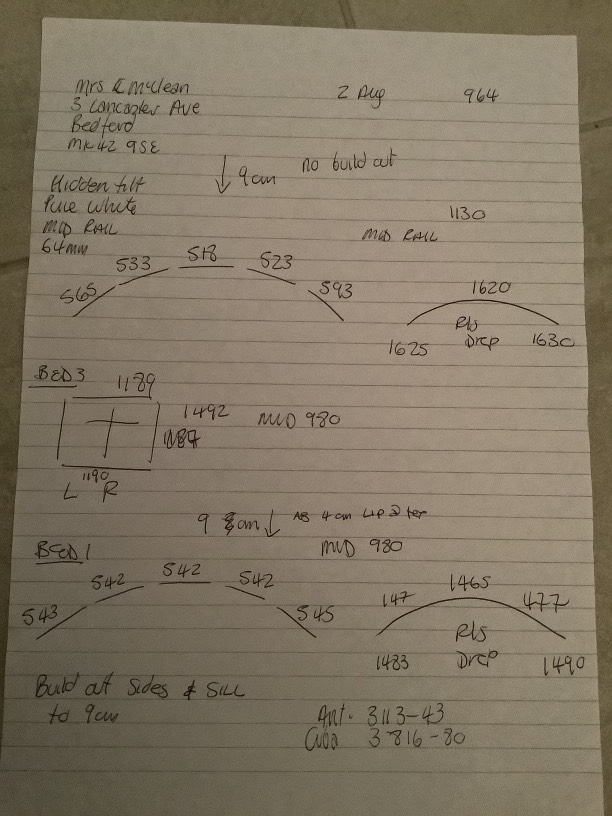 Mrs E McClean
2 Aug
964
3 Lancaster Ave
Bedford
MK42 9SE
9cm
no build out
Hidden tilt
Pure White
MID RAIL
64mm
1130
MID RAIL
565
533
518
523
593
1620
1625
R/s
Drop
1630
BED 3
1189
1492
1187
MID 980
1190
L R
9 cm
AS 4cm Lip
MID 980
BED 1
543
542
542
542
545
147
1465
477
1483
R/s
Drop
1490
Build out Sides & SILL
to 9cm
Ant. 3113-43
Cuba 3816-80